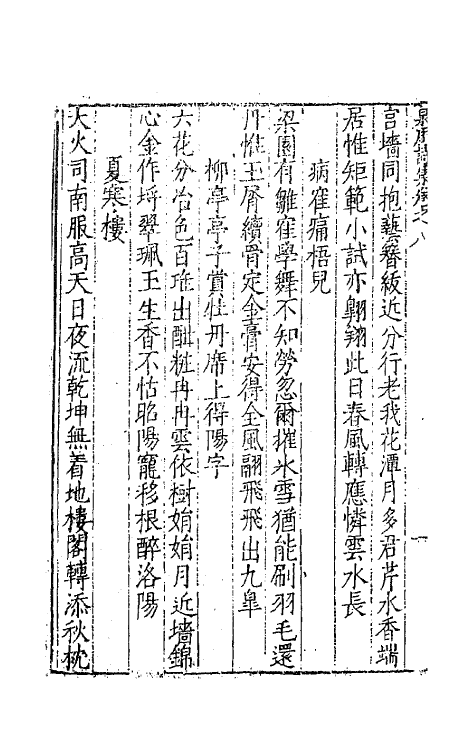 宫墻同抱藝簪紱近分行老我花潭月多君芹水香端
居惟矩範小試亦翺翔此日春風轉應憐雲水長
病寉痛梧兒
梁園有雛寉學舞不知勞忽爾摧氷雪猶能刷羽毛還
丹惟玉屑續骨定金膏安得全風翮飛飛出九臯
柳亭亭子賞牡丹席上得陽字
六花分治色百琲出酣粧冉冉雲依樹娟娟月近墻錦
心金作埒翠珮玉生香不怙昭陽寵移根醉洛陽
夏寒樓
大火司南服高天日夜流乾坤無着地樓閣轉添秋枕